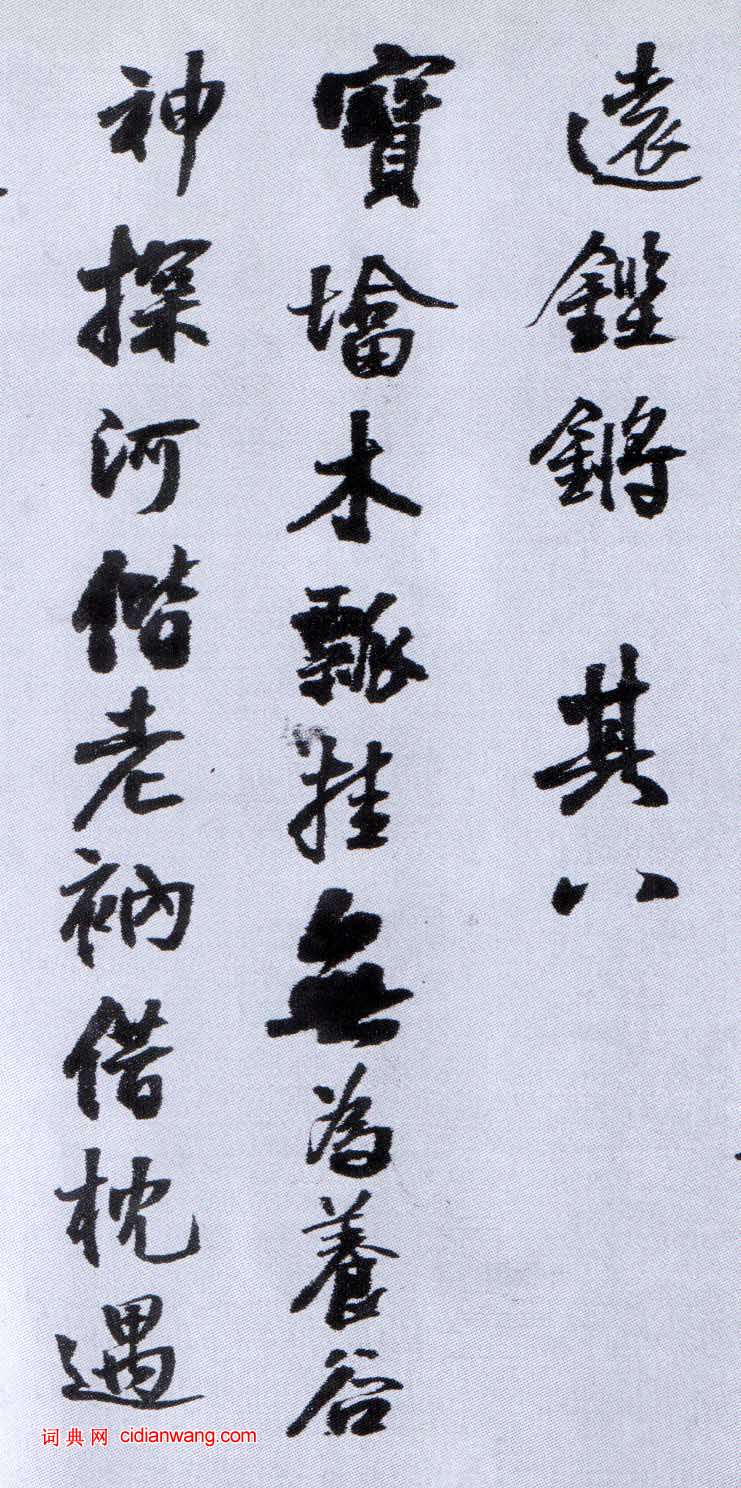 遠鏗鏘 其八
寶墖木瓢挂無為養谷
神探河偕老衲借枕遇
词典网 cidianwang.com